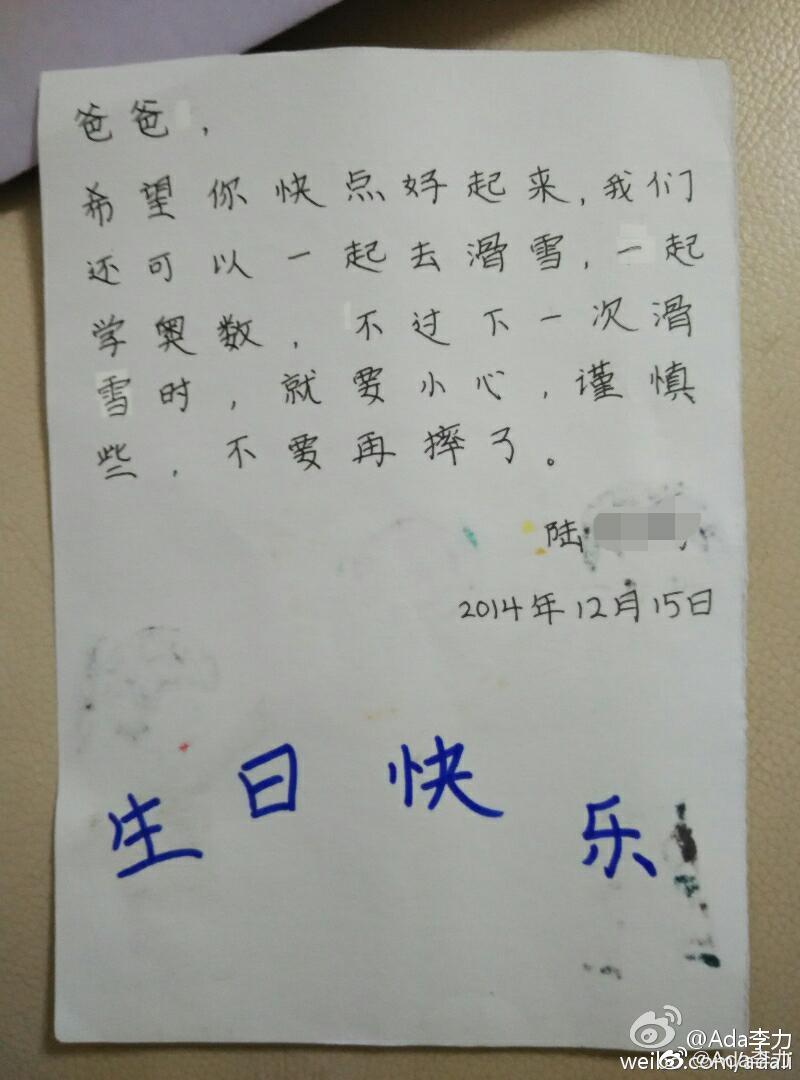 爸爸，
希望你快点好起来，我们
还可以一起去滑雪，一起
学奥数，不过下一次滑
雪时，就要小心，谨慎
些，不要再摔了。
陆
2014年12月15日
生日快乐
@Ada李力
@Ada李力